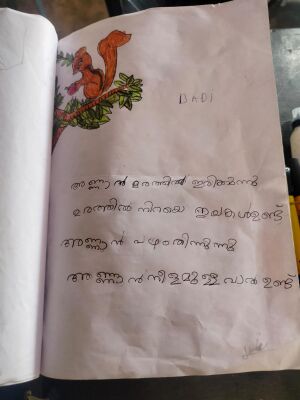 BADI
അണ്ണാൻ മരത്തിൽ ഇരിക്കുന്നു
മരത്തിൽ നിറയെ ഇലകൾഉണ്ട്
അണ്ണാൻ പഴംതിന്നുന്നു
അണ്ണാൻ നീളമുള്ള വാൽ ഉണ്ട്